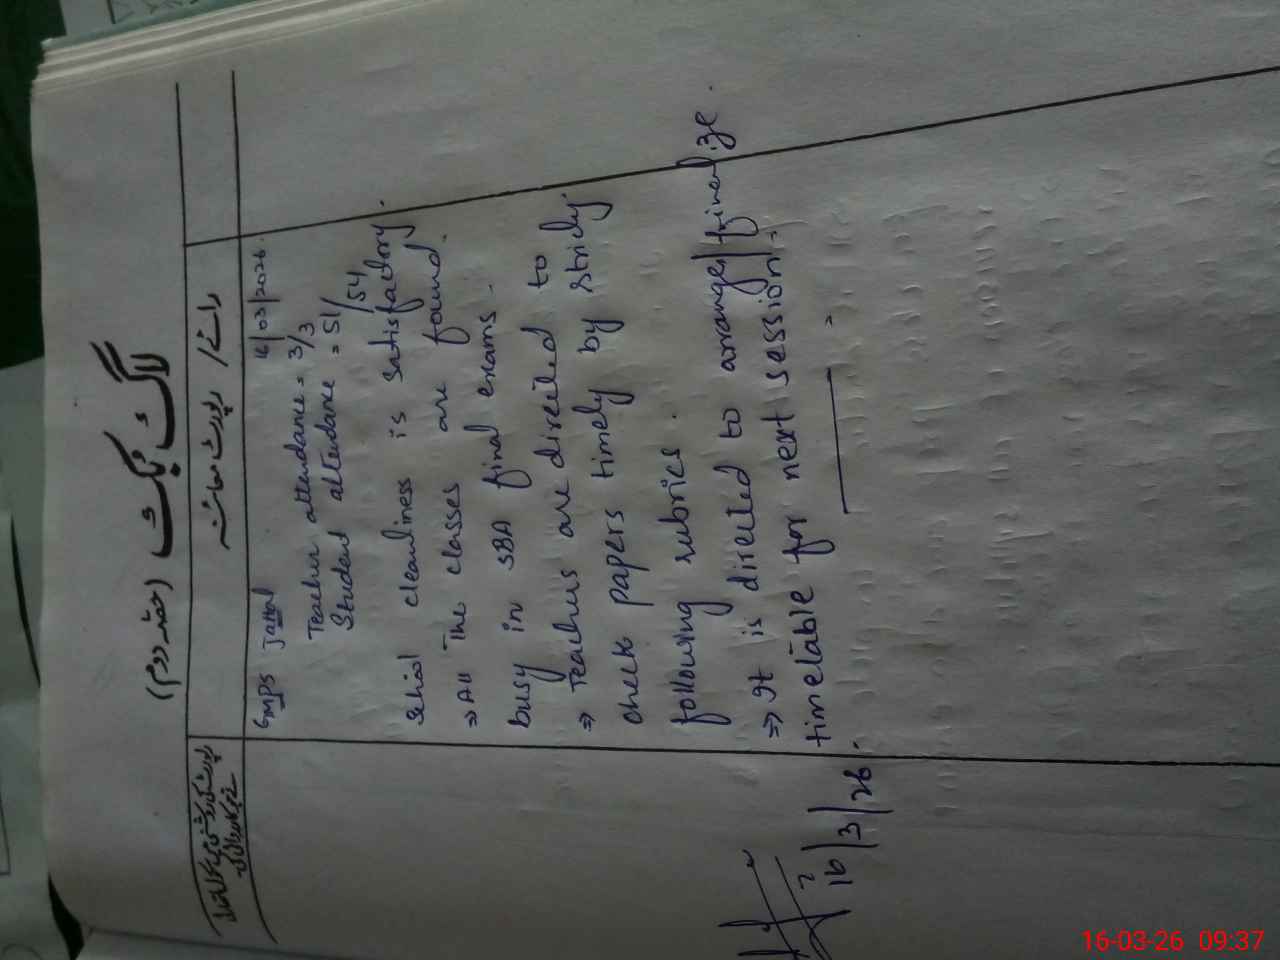 لاگ بک (حصّہ دوم)
رائے/ رپورٹ معائنہ
GMPS Jattal 16/03/2026.
Teacher attendance = 3/3
Student attendance = 51/54
School cleanliness is satisfactory.
⇒ All the classes are found
busy in SBA final exams.
⇒ Teachers are directed to
check papers timely by strictly
following rubrics.
⇒ It is directed to arrange/finalize
timetable for next session.
16/3/26.
16-03-26 09:37